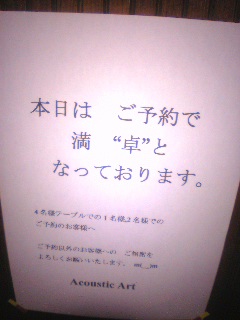 本日は　ご予約で
満　“卓”と
なっております。
4名様テーブルでの1名様,2名様での
ご予約のお客様へ
ご予約以外のお客様への　ご相席を
よろしくお願いいたします。 m(__)m
Acoustic Art